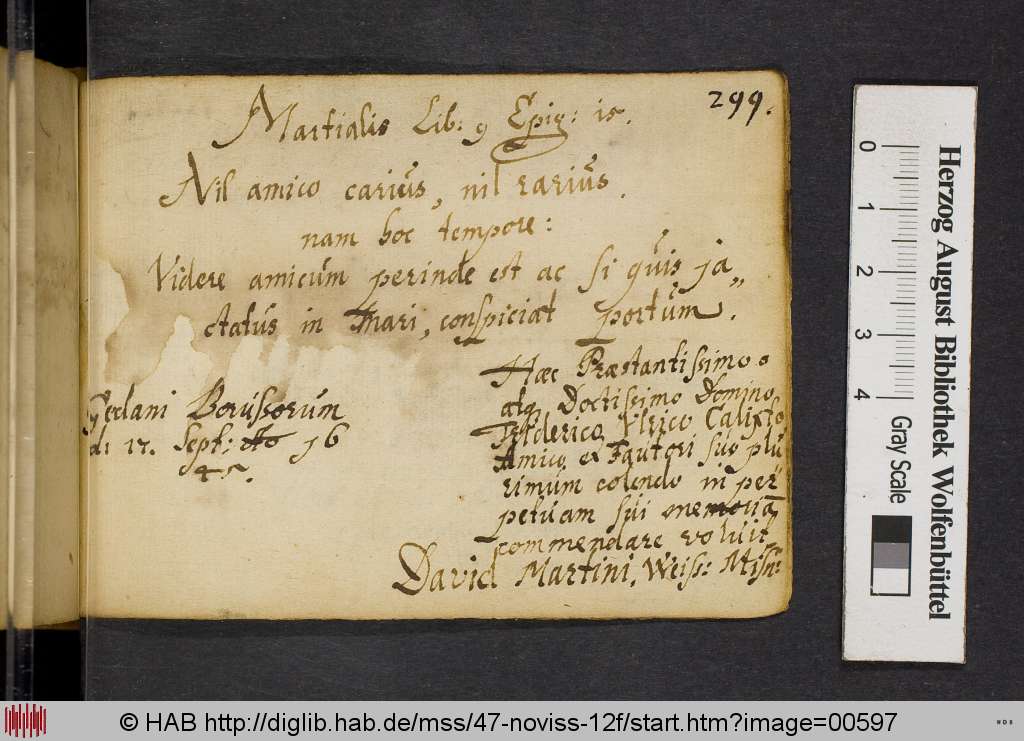 299.
Martialis Lib: 9 Epig: 15.
Nil amico carius, nil rarius
nam hoc tempore:
Videre amicum perinde est ac si quis ja„
ctatus in Mari, conspiciat portum.
Gedani Borussorum
di 17. Sept: Ao 16
45.
Hæc Præstantissimo
atq Doctissimo Domino
Friderico Vlrico Calixto
Amico et Fautori suo plu
rimum colendo in per
petuam sui memoriã
commendare voluit
David Martini. Weiss: Misn:
Herzog August Bibliothek Wolfenbüttel
0 1 2 3 4
Gray Scale
© HAB http://diglib.hab.de/mss/47-noviss-12f/start.htm?image=00597
WDB